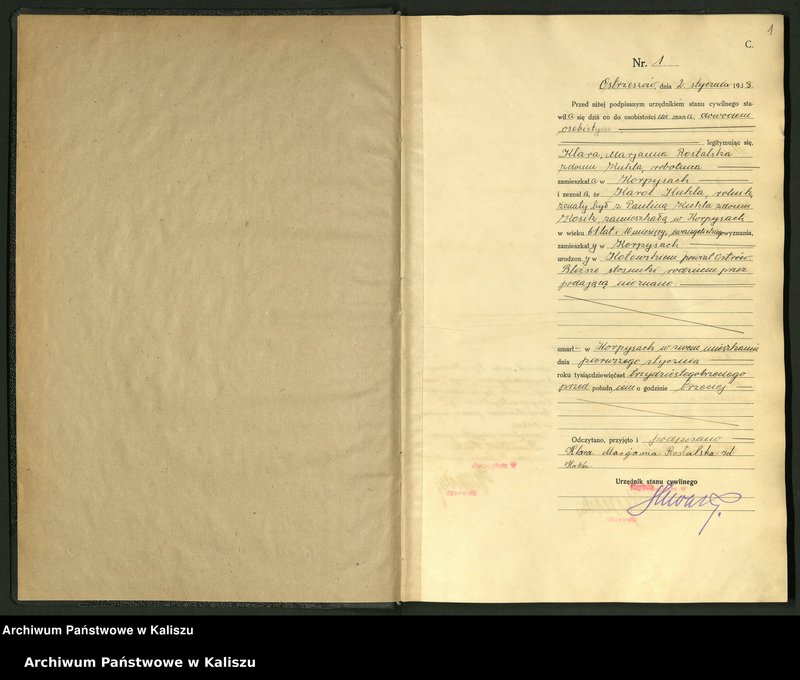 1
C.
Nr. 1.
Ostrzeszów, dnia 2 stycznia 1933
Przed niżej podpisanym urzędnikiem stanu cywilnego sta-
wiła się dziś co do osobistości znana, dowodem
osobistym
legitymując się,
Klara, Marjanna Rostalska
z domu Kukla, robotnica
zamieszkała w Korpysach
i zeznała, że Karol Kukla, rolnik,
żonaty był z Pauliną Kukla z domu
zamieszkałą w Korpysach
w wieku 61 lat i 10 miesięcy, ewangelickiego wyznania,
zamieszkały w Korpysach
urodzony w Kotowskiem powiat Ostrów.
Bliższe stosunki rodzinne przez
podającą nieznane.
umarł w Korpysach w swem mieszkaniu
dnia pierwszego stycznia
roku tysiącdziewięćset trzydziestegotrzeciego
przed południem o godzinie trzeciej
Odczytano, przyjęto i podpisano
Klara Marjanna Rostalska zd
Kukla
Urzędnik stanu cywilnego
Archiwum Państwowe w Kaliszu
Archiwum Państwowe w Kaliszu